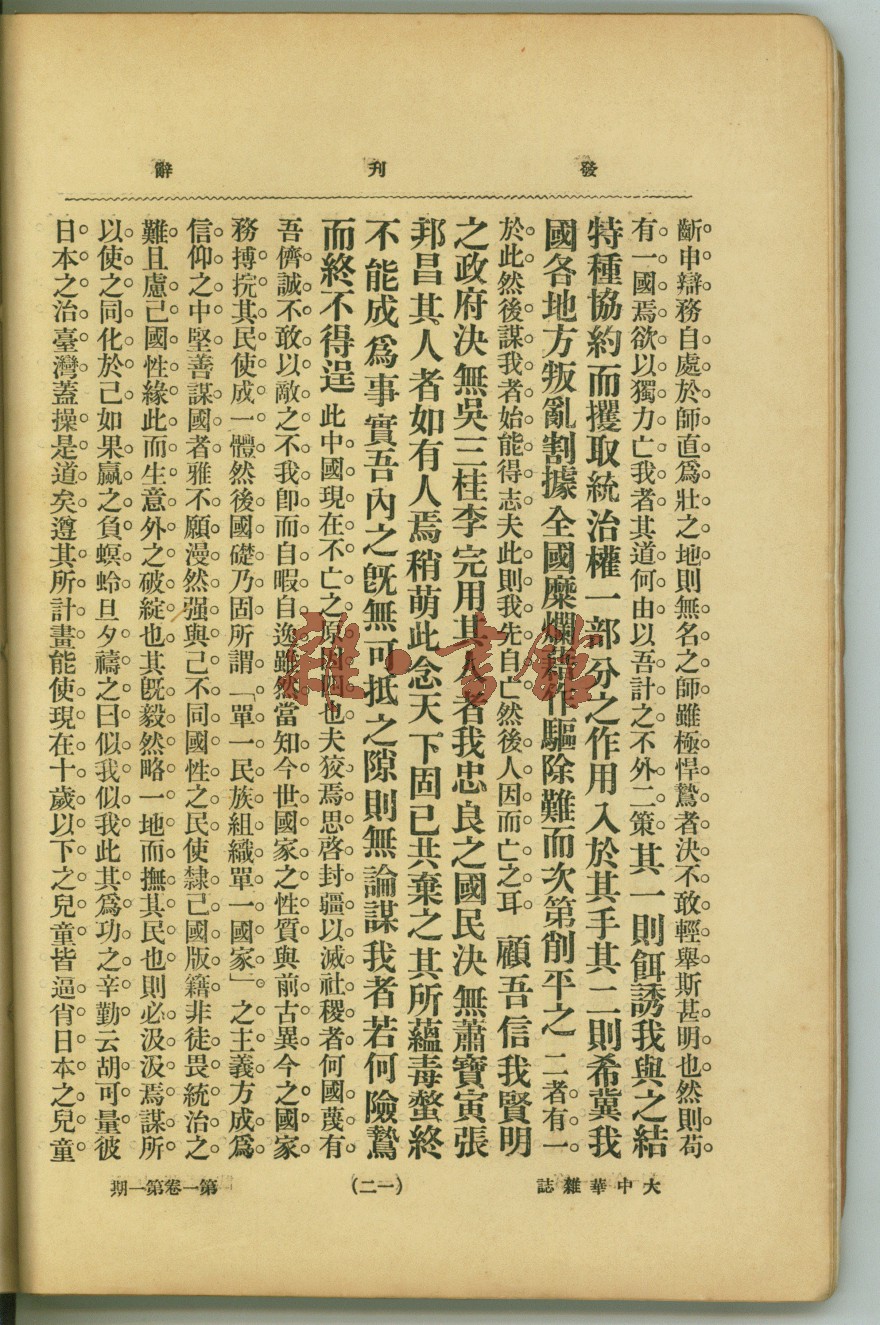 發刊辭
齗申辯務自處於師直爲壯之地則無名之師雖極悍鷙者決不敢輕舉斯甚明也然則苟
有一國焉欲以獨力亡我者其道何由以吾計之不外二策其一則餌誘我與之結
特種協約而攫取統治權一部分之作用入於其手其二則希冀我
國各地方叛亂割據全國糜爛藉作驅除難而次第削平之二者有一
於此然後謀我者始能得志夫此則我先自亡然後人因而亡之耳顧吾信我賢明
之政府決無吳三桂李完用其人者我忠良之國民決無蕭寶寅張
邦昌其人者如有人焉稍萌此念天下固已共棄之其所蘊毒螫終
不能成爲事實吾內之旣無可抵之隙則無論謀我者若何險鷙
而終不得逞此中國現在不亡之原因四也夫狡焉思啓封疆以滅社稷者何國蔑有
吾儕誠不敢以敵之不我卽而自暇自逸雖然當知今世國家之性質與前古異今之國家
務摶捖其民使成一體然後國礎乃固所謂「單一民族組織單一國家」之主義方成爲
信仰之中堅善謀國者雅不願漫然强與己不同國性之民使隸己國版籍非徒畏統治之
難且慮己國性緣此而生意外之破綻也其旣毅然略一地而撫其民也則必汲汲焉謀所
以使之同化於己如果蠃之負螟蛉旦夕禱之曰似我似我此其爲功之辛勤云胡可量彼
日本之治臺灣蓋操是道矣遵其所計畫能使現在十歲以下之兒童皆逼肖日本之兒童
大中華雜誌
(一二)
第一卷第一期
雜·書館